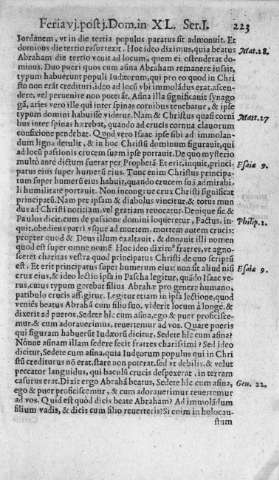 Feria vj. post j. Dom. in XL. Ser. I. 223
Iordanem, vt in die tertia populus paratus sit admonuit. Et
dominus die tertio resurrexit. Hoc ideo diximus, quia beatus
Abraham die tertio venit ad locum, quem ei ostenderat do-
minus. Duo pueri quos cum asina Abraham remanere iussit,
typum habuerunt populi Iudæorum, qui pro eo quod in Chri
sto non erāt credituri, ideo ad locū vbi immolādus erat, ascen-
dere, vel peruenire non poterāt. Asina illa significauit synago-
gā, aries vero ille qui inter spinas cornibus tenebatur, & ipse
typum domini habuisse videtur. Nam & Christus quasi corni
bus inter spinas hærebat, quando ad crucis cornua clauorum
confixione pendebat. Quod vero Isaac ipse sibi ad immolan-
dum ligna detulit, & in hoc Christū dominum figurauit, qui
ad locū passionis crucem suam ipse portauit. De quo mysterio
multo ante dictum fuerat per Prophetā. Et erit, inquit, princi-
patus eius super humerū eius. Tunc enim Christus principa-
tum super humerū suum habuit, quando crucem suā mirabi-
li humilitate portauit. Non incongrue crux Christi significat
principatū. Nam per ipsam & diabolus vincitur, & totus mun
dus ad Christi notitiam vel gratiam reuocatur. Denique sic &
Paulus dicit, cum de passione domini loqueretur, Factus, in-
quit, obediens patri vsque ad mortem, mortem autem crucis:
propter quod & Deus illum exaltauit, & donauit illi nomen
quod est super omne nomē. Hoc ideo diximꝰ fratres, vt agno-
sceret charitas vestra quod principatus Christi de quo scriptū
est, Et erit principatus super humerum eius: non sit aliud nisi
crux eius, & ideo lectio ista in Pascha legitur, quādo Isaac ve-
rus, cuius typum gerebat filius Abrahæ pro genere humano,
patibulo crucis affigitur. Legitur etiam in ipsa lectione, quod
veniēs beatus Abrahā cum filio suo, viderit locum à longe, &
dixerit ad pueros, Sedete hîc cum asina, ego & puer proficisce-
mur, & cum adorauerimus, reuertemur ad vos. Quare pueris
qui figuram habuerūt Iudæorū dicitur, Sedete hîc cum asina?
Nonne asinam illam sedere fecit fratres charissimi? Sed ideo
dicitur, Sedete cum asina, quia Iudæorum populus qui in Chri
stū crediturus nō erat, stare non poterat, sed vt debilis, & velut
peccator languidus, qui baculū crucis despexerat, in terram
casurus erat. Dixit ergo Abrahā beatus, Sedete hîc cum asina,
ego & puer proficiscemur, & cum adorauerimus reuertemur
ad vos. Quid est quod dicis beate Abraham? Ad immolādum
filium vadis, & dicis cum filio reuerteris? Si enim in holocau-
stum
Mat. 28.
Matt. 27
Esaiæ 9.
Philip. 2.
Esaiæ 9.
Gen. 22.